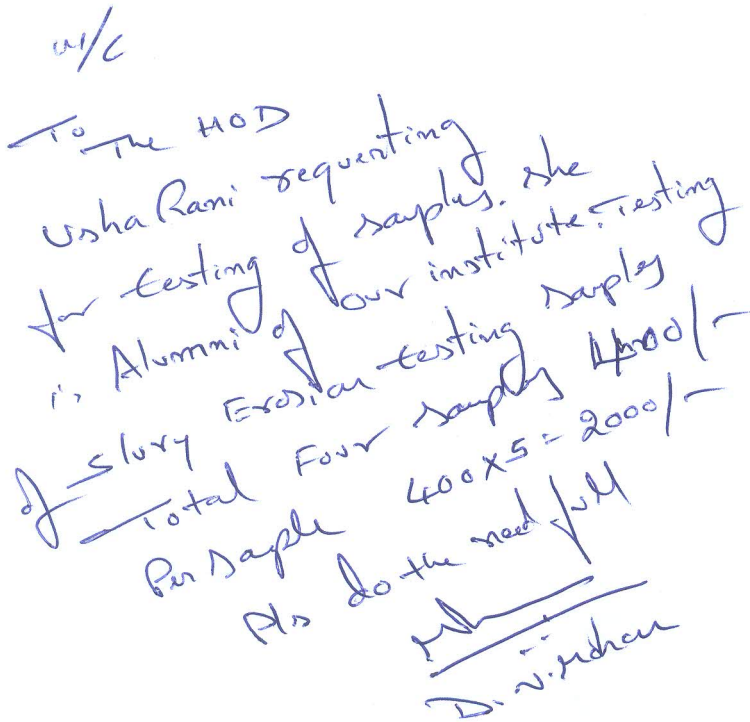 To The HOD
Usha Rani requesting
for testing of samples. she
is Alumni of our institute. Testing
of slury Erosion testing samples
Total Four samples 400/-
Per sample 400x5=2000/-
Pls do the need full